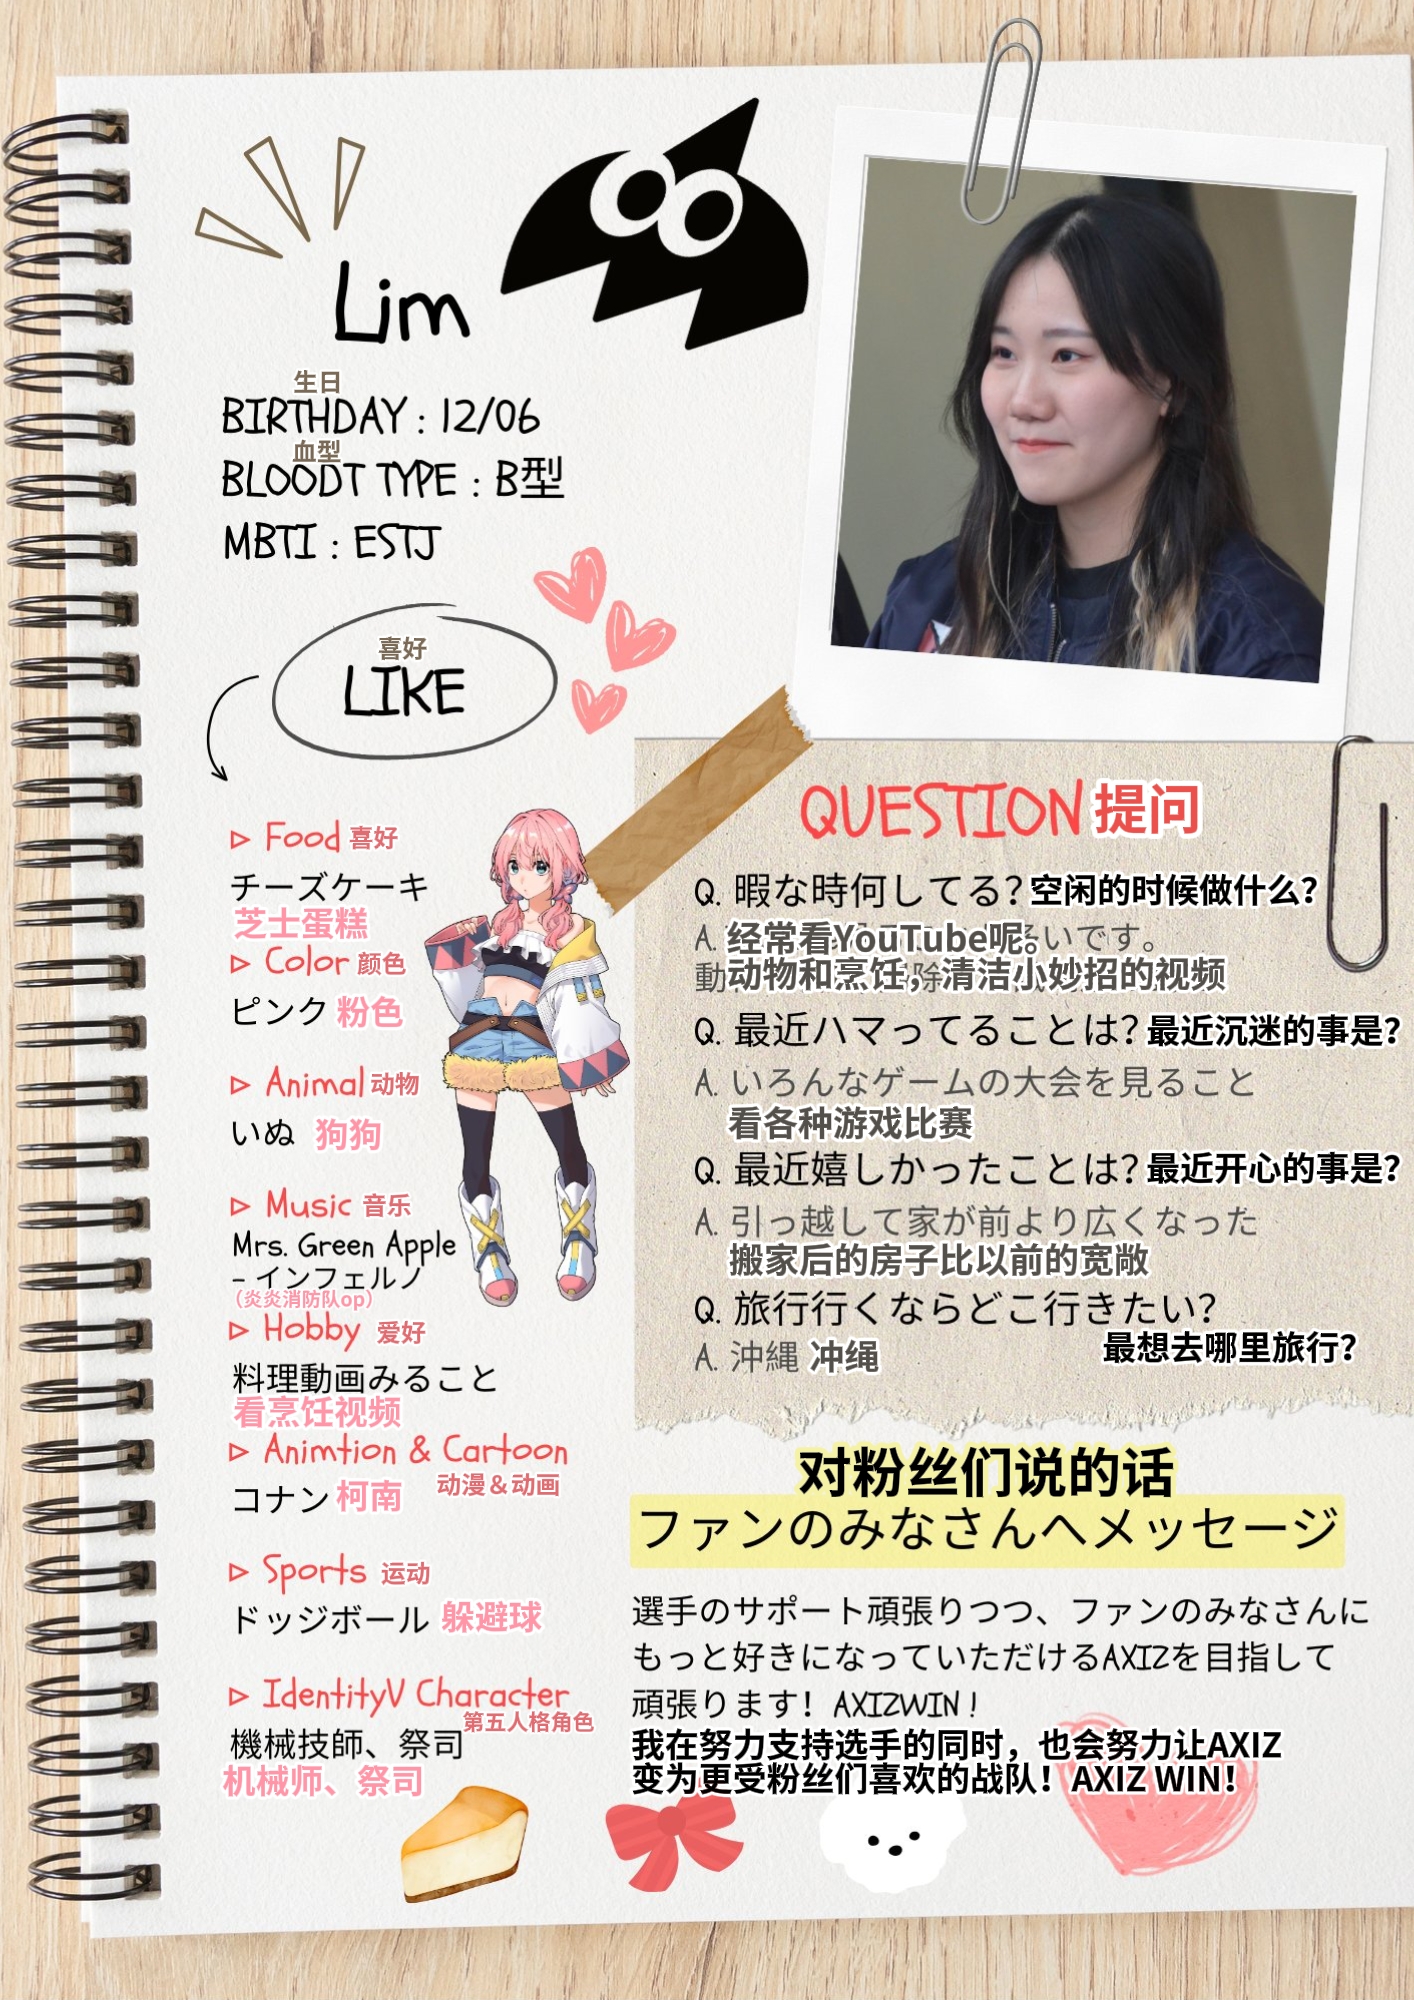 Lim
生日
BIRTHDAY : 12/06
血型
BLOODT TYPE : B型
MBTI : ESTJ
喜好
LIKE
Food 喜好
チーズケーキ
芝士蛋糕
Color 颜色
ピンク 粉色
Animal 动物
いぬ 狗狗
Music 音乐
Mrs. Green Apple
- インフェルノ
（炎炎消防队op）
Hobby 爱好
料理動画みること
看烹饪视频
Animtion & Cartoon
动漫＆动画
コナン 柯南
Sports 运动
ドッジボール 躲避球
IdentityV Character
第五人格角色
機械技師、祭司
机械师、祭司
QUESTION 提问
Q. 暇な時何してる? 空闲的时候做什么?
A. 经常看YouTube呢。いです。
動动物和烹饪，除清洁小妙招的视频
Q. 最近ハマってることは? 最近沉迷的事是?
A. いろんなゲームの大会を見ること
看各种游戏比赛
Q. 最近嬉しかったことは? 最近开心的事是?
A. 引っ越して家が前より広くなった
搬家后的房子比以前的宽敞
Q. 旅行行くならどこ行きたい?
最想去哪里旅行?
A. 沖縄 冲绳
对粉丝们说的话
ファンのみなさんへメッセージ
選手のサポート頑張りつつ、ファンのみなさんに
もっと好きになっていただけるAXIZを目指して
頑張ります！AXIZWIN !
我在努力支持选手的同时，也会努力让AXIZ
变为更受粉丝们喜欢的战队！AXIZ WIN！